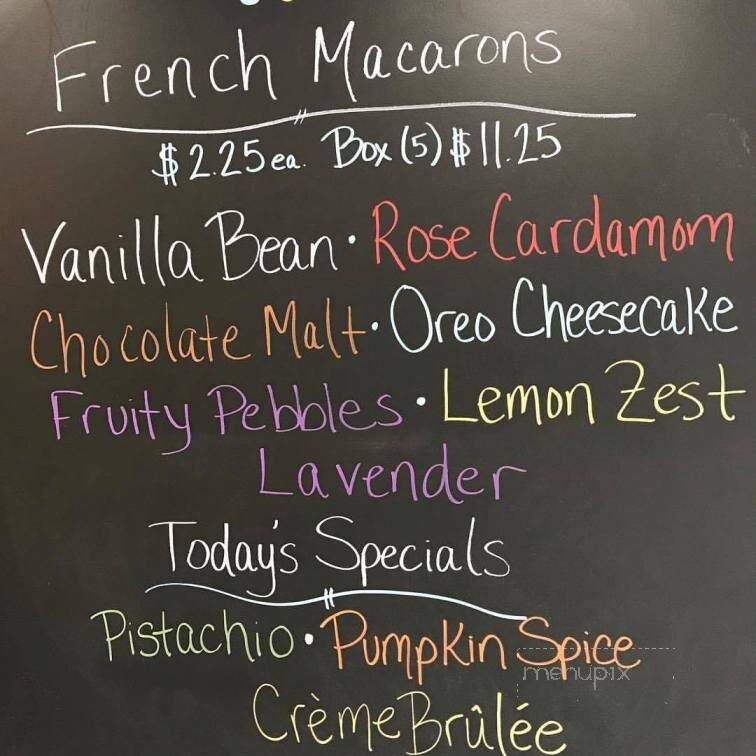 French Macarons
$2.25ea. Box (5) $11.25
Vanilla Bean · Rose Cardamom
Chocolate Malt · Oreo Cheesecake
Fruity Pebbles · Lemon Zest
Lavender
Today's Specials
Pistachio · Pumpkin Spice
menupix
Crème Brûlée